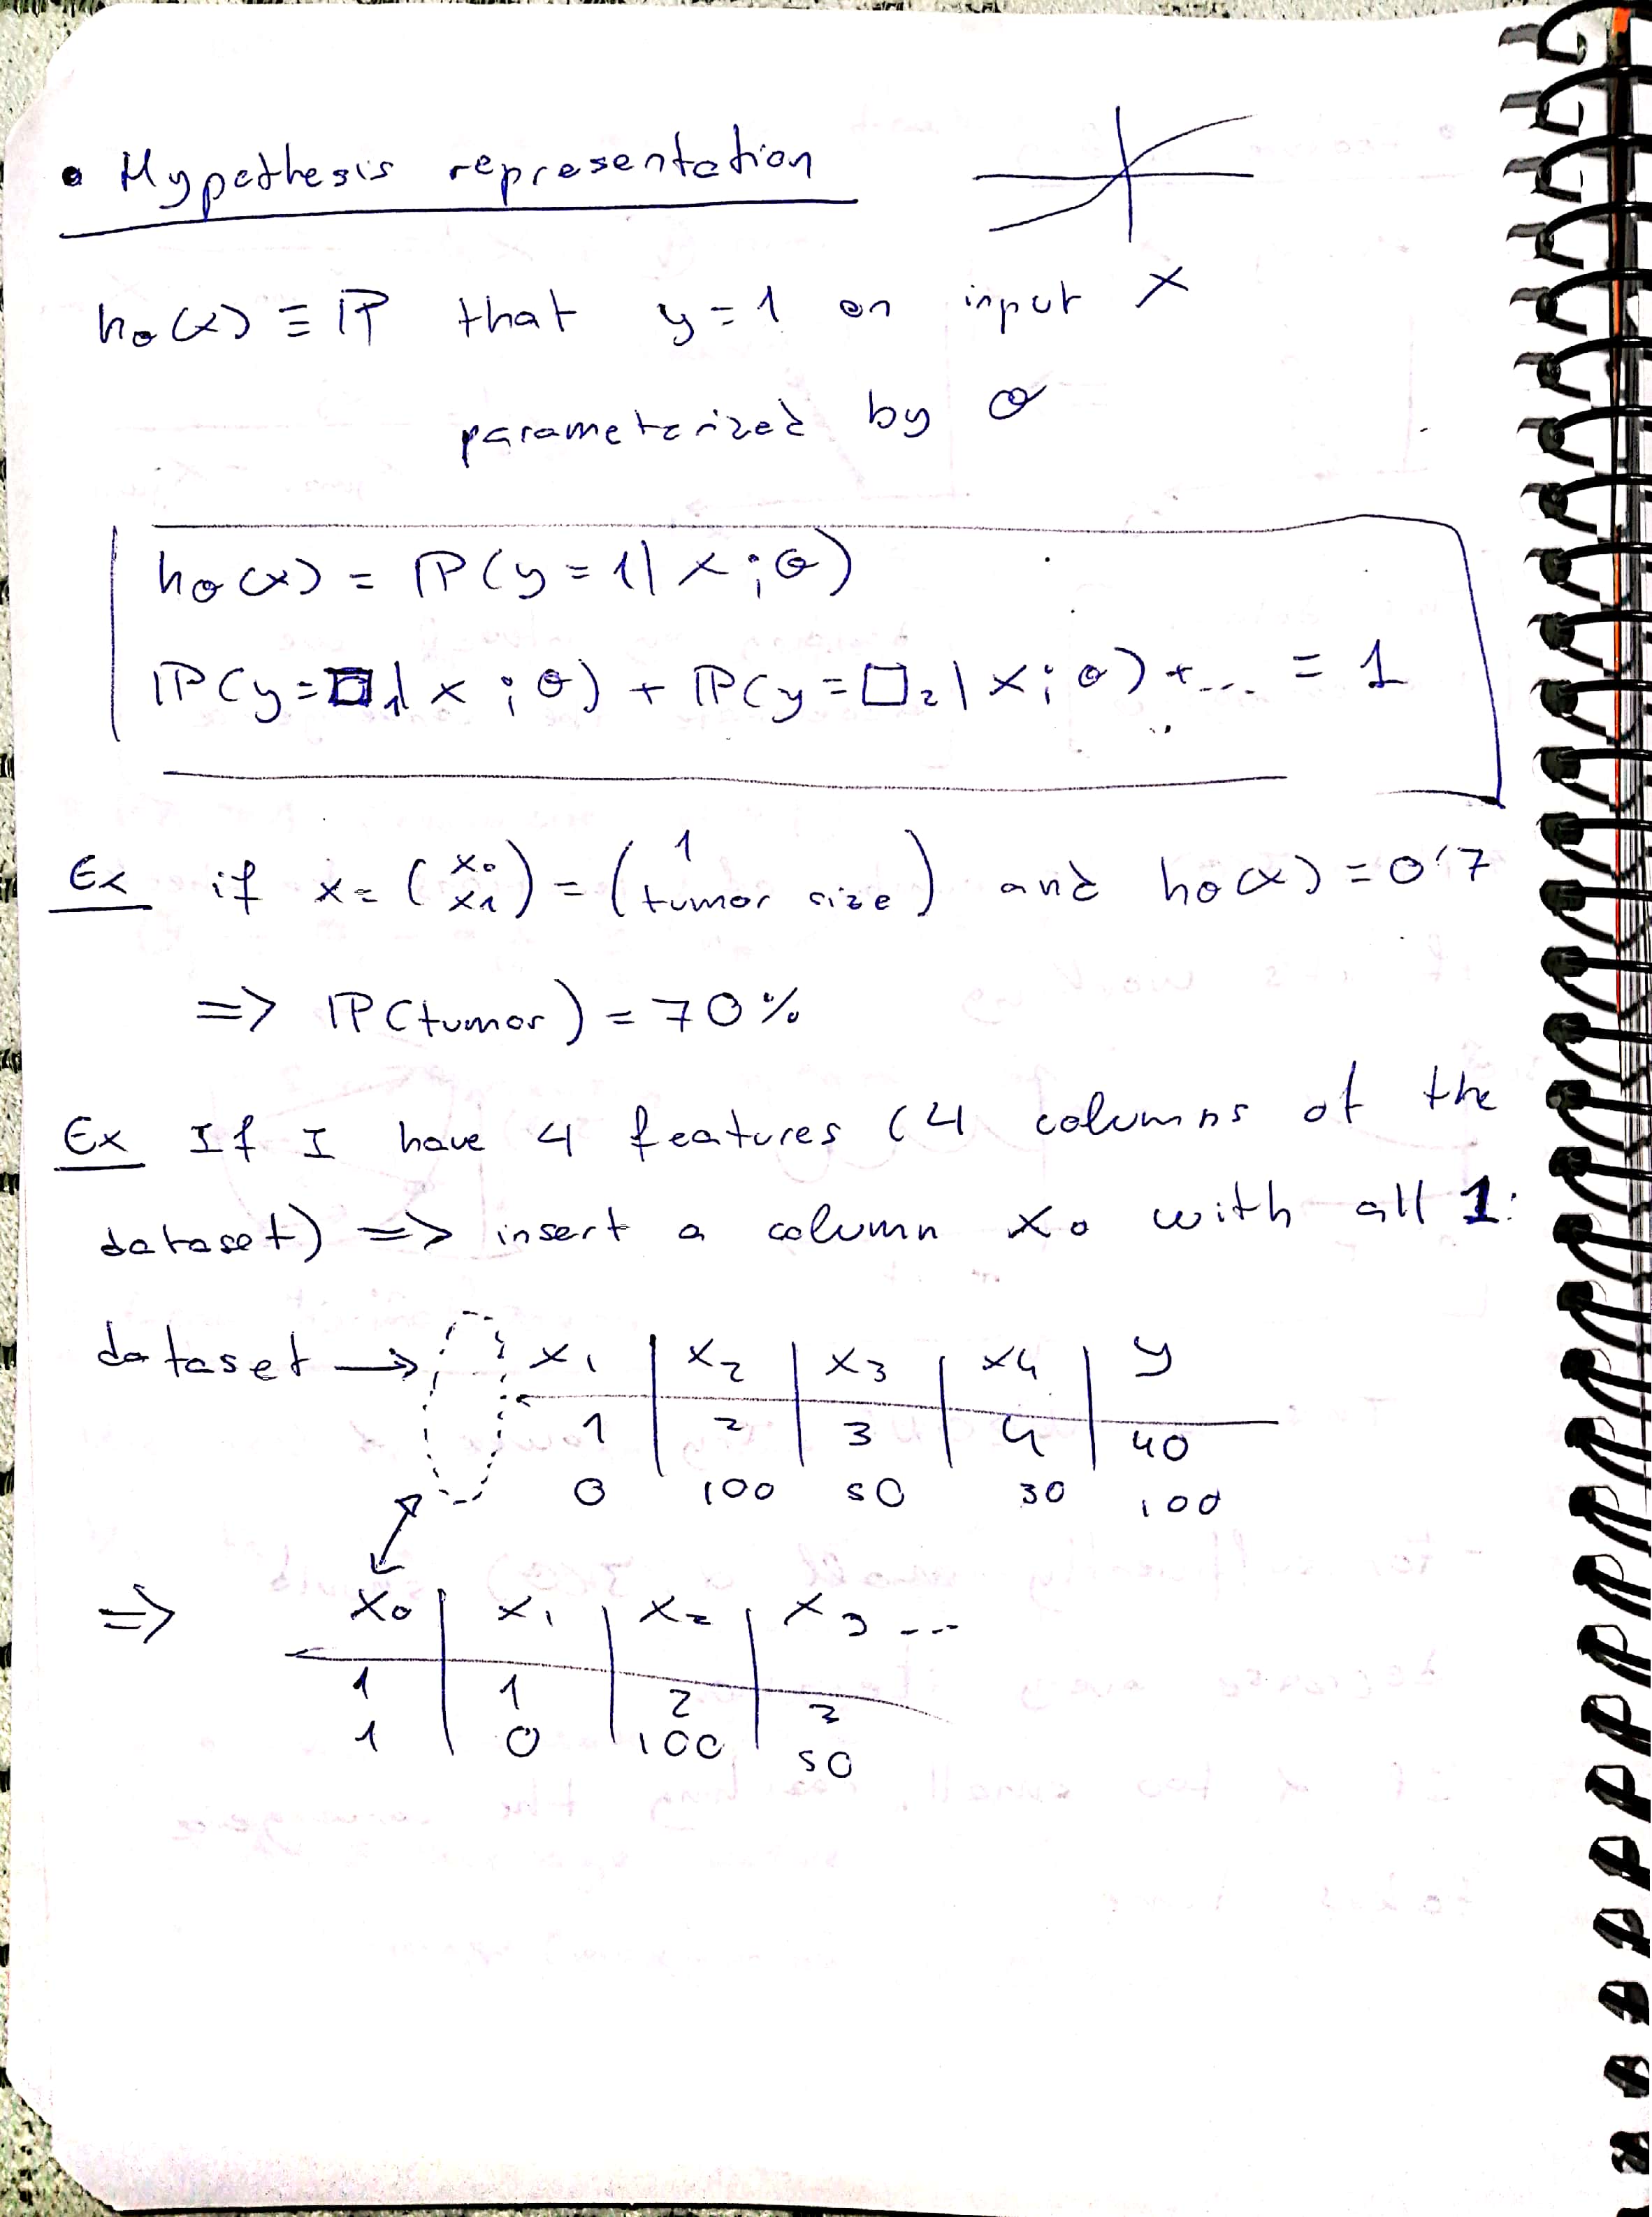 • Hypothesis representation
hθ(x) ≡ ℙ that y = 1 on input x
parameterized by θ
hθ(x) = ℙ(y = 1 | x ; θ)
ℙ(y = □1 | x ; θ) + ℙ(y = □2 | x ; θ) + ... = 1
Ex if x = (x0 x1) = (1 tumor size) and hθ(x) = 0'7
=> ℙ(tumor) = 70%
Ex If I have 4 features (4 columns of the
dataset) => insert a column x0 with all 1:
dataset → x1 | x2 | x3 | x4 | y
1 | 2 | 3 | 4 | 40
0 100 50 30 100
=> x0 | x1 | x2 | x3 ...
1 | 1 | 2 | 3
1 | 0 | 100 | 50